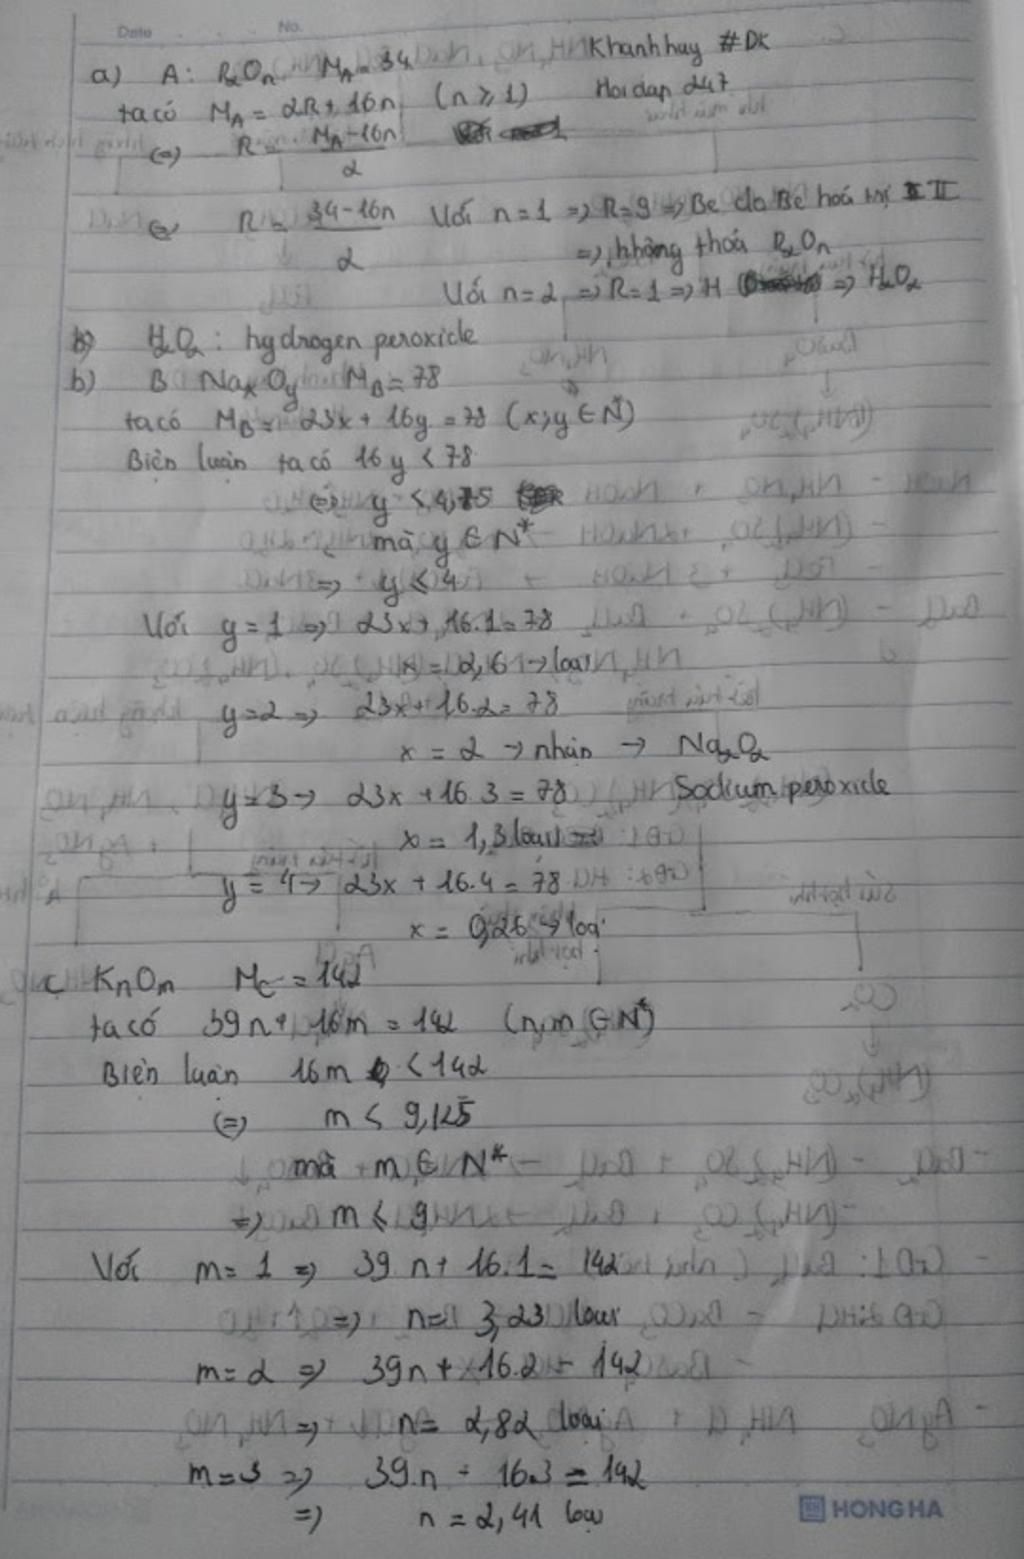 Date No.
a) A: R₂On M_A = 34 Khanhhuy #DK
ta có M_A = 2R + 16n (n ≥ 1) Hoidap 247
(=) R = M_A - 16n / 2
(=) R = 34 - 16n / 2 Với n = 1 => R = 9 => Be do Be hoá trị II
=> không thoả R₂On
Với n = 2 => R = 1 => H => H₂O₂
b) H₂O₂ : hydrogen peroxide
b) B NaxOy M_B = 78
ta có M_B = 23x + 16y = 78 (x; y ∈ N*)
Biện luận ta có 16y < 78
(=) y < 4,875
mà y ∈ N*
=> y ≤ 4
Với y = 1 => 23x + 16.1 = 78
x = 2,6 -> loại
y = 2 => 23x + 16.2 = 78
x = 2 -> nhận -> Na₂O₂
y = 3 -> 23x + 16.3 = 78 Sodium peroxide
x = 1,3 loại
y = 4 -> 23x + 16.4 = 78
x = 0,26 -> loại
c KnOm M_C = 142
ta có 39n + 16m = 142 (n,m ∈ N*)
Biện luận 16m < 142
(=) m < 9,125
mà m ∈ N*
=> m ≤ 9
Với m = 1 => 39n + 16.1 = 142
=> n = 3,23 loại
m = 2 => 39n + 16.2 = 142
=> n = 2,82 loại
m = 3 => 39n + 16.3 = 142
=> n = 2,41 loại
HONG HA